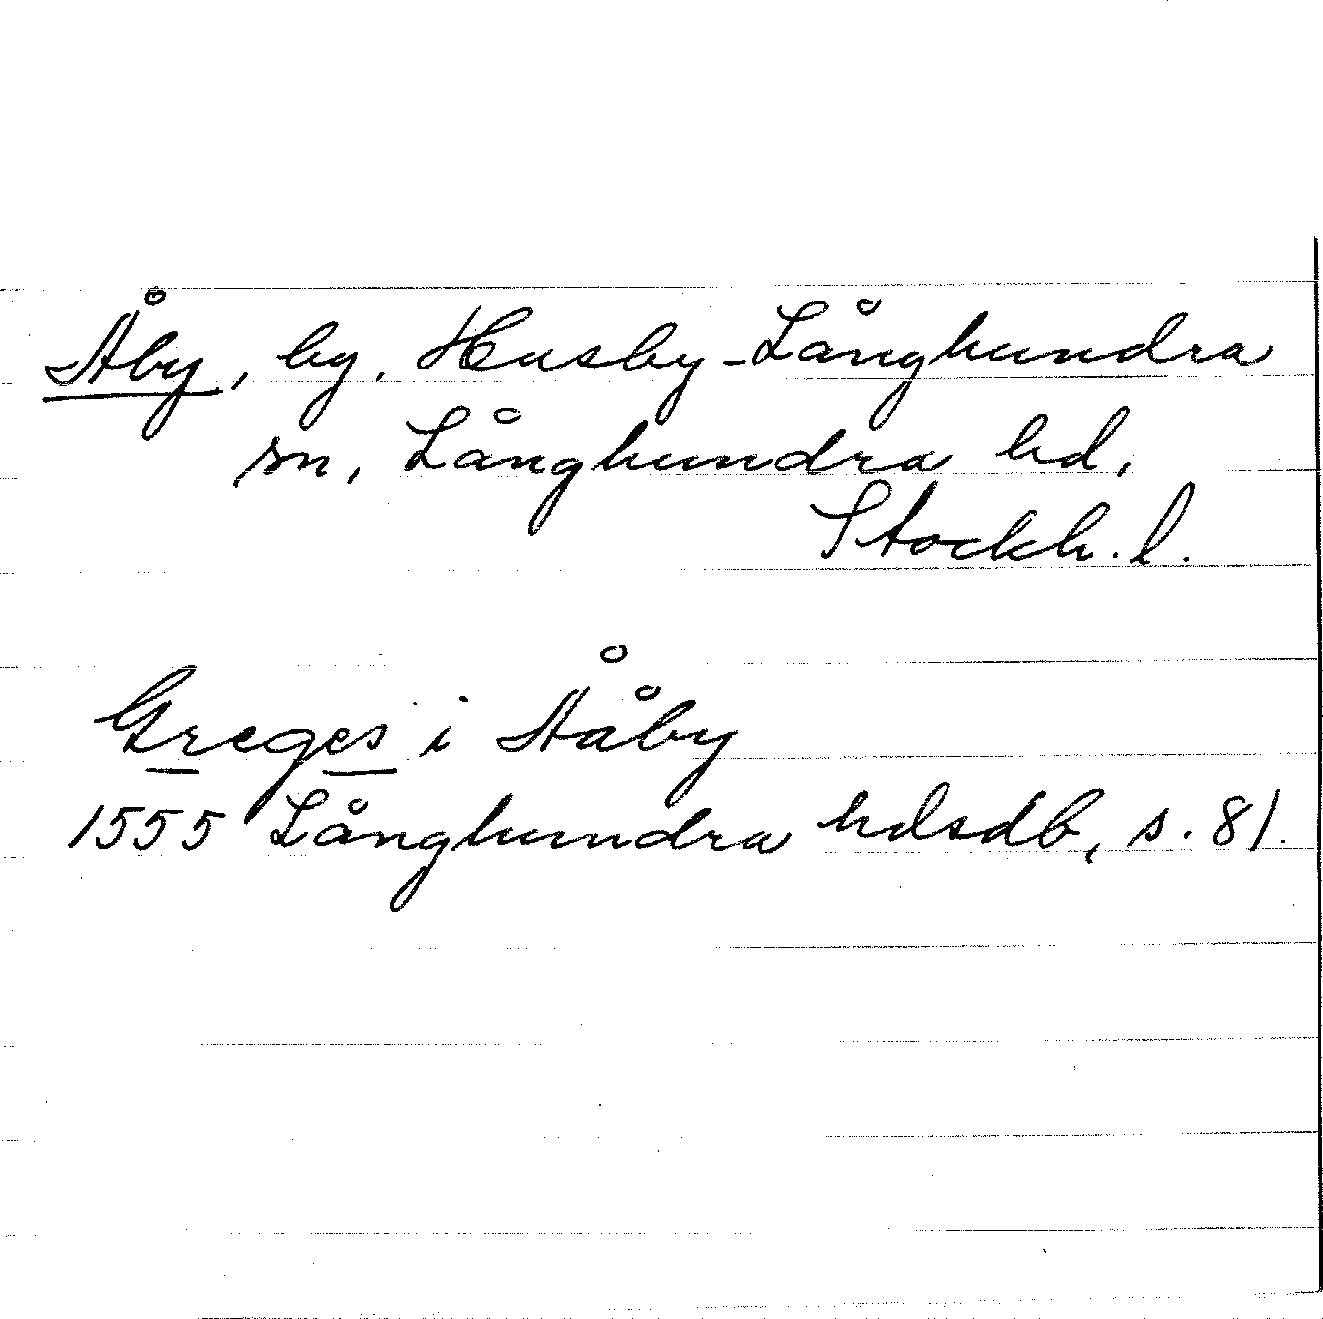 Åby, by, Husby-Långhundra
sn, Långhundra hd,
Stockh. l.
Greges i Ååby
1555 Långhundra hdsdb, s. 81.